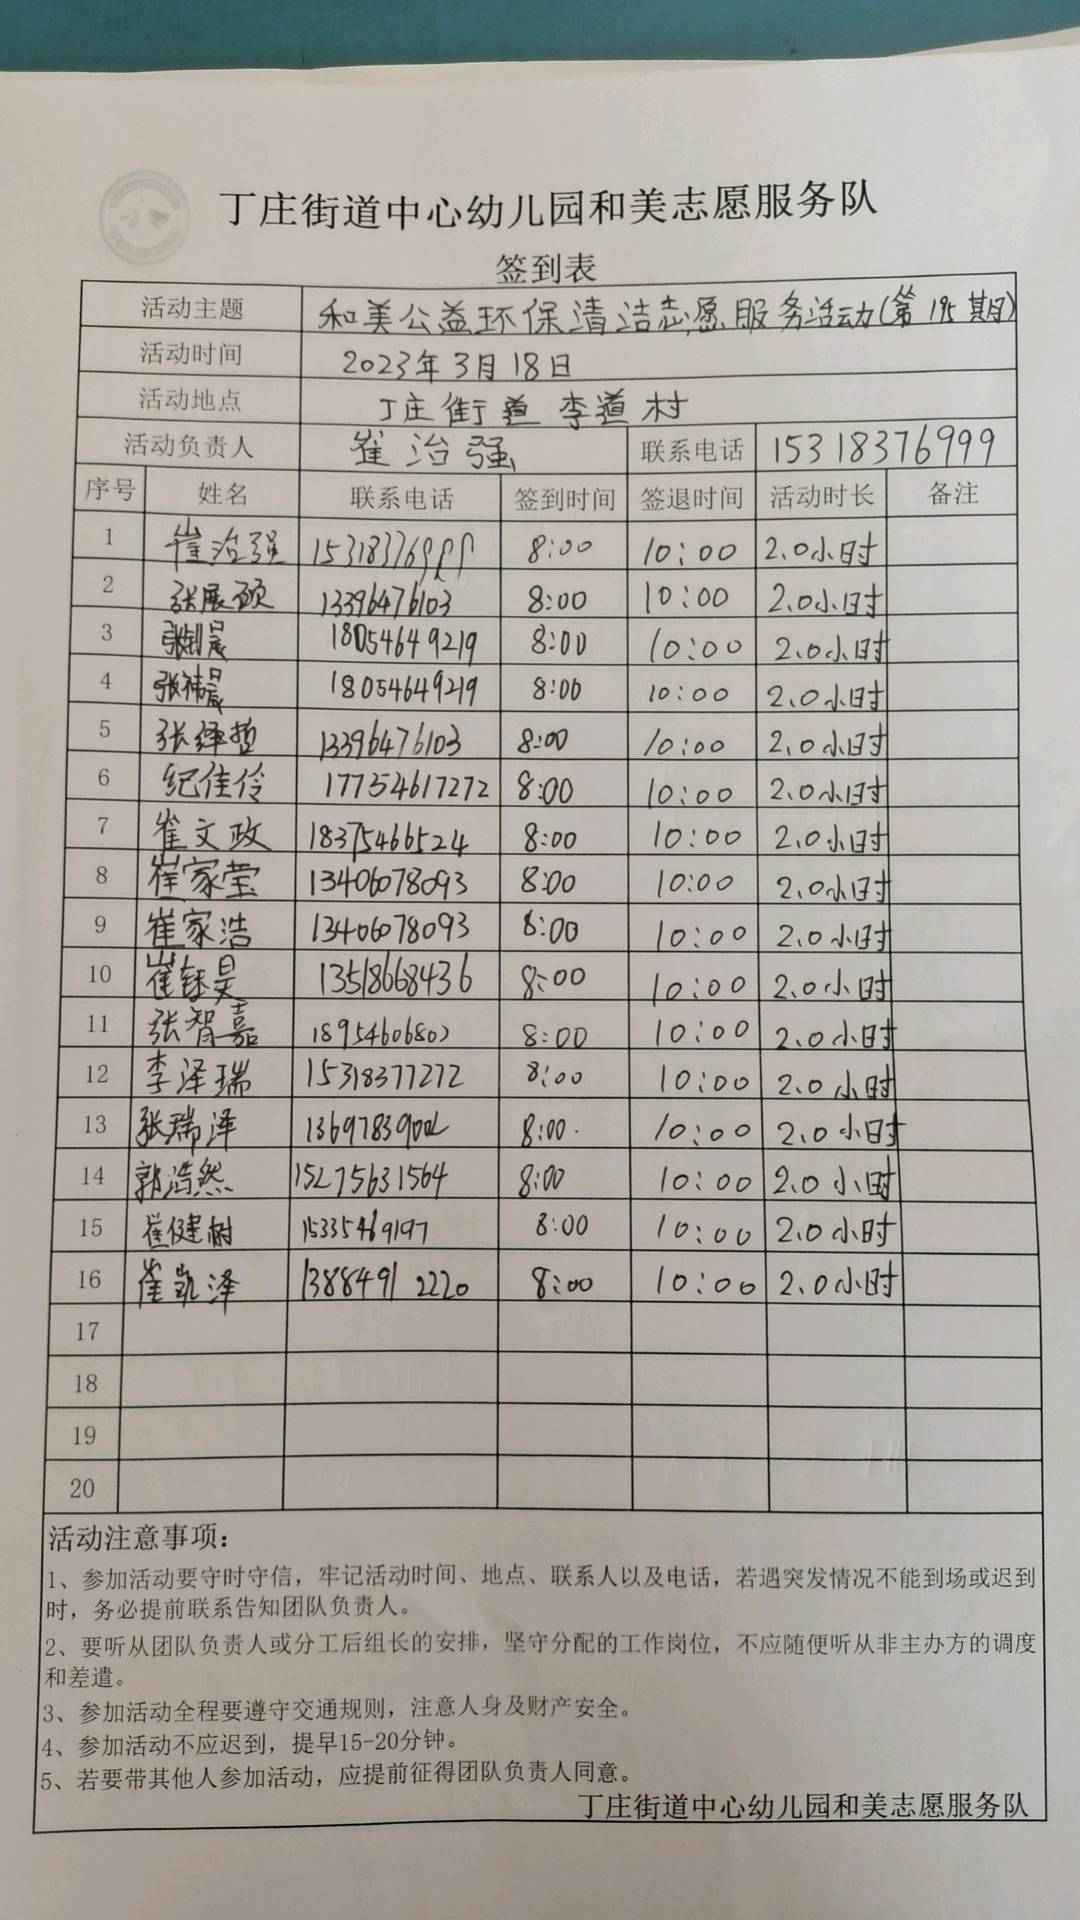 丁庄街道中心幼儿园和美志愿服务队
签到表
活动主题 和美公益环保清洁志愿服务活动(第195期)
活动时间 2023年3月18日
活动地点 丁庄街道李道村
活动负责人 崔治强 联系电话 15318376999
序号 姓名 联系电话 签到时间 签退时间 活动时长 备注
1 崔治强 15318376999 8:00 10:00 2.0小时
2 张展硕 13396476103 8:00 10:00 2.0小时
3 18054649219 8:00 10:00 2.0小时
4 张祎晨 18054649219 8:00 10:00 2.0小时
5 张绎哲 13396476103 8:00 10:00 2.0小时
6 纪佳伶 17754617272 8:00 10:00 2.0小时
7 崔文政 18375466524 8:00 10:00 2.0小时
8 崔家莹 13406078093 8:00 10:00 2.0小时
9 崔家浩 13406078093 8:00 10:00 2.0小时
10 崔钰昊 13518668436 8:00 10:00 2.0小时
11 张智嘉 18954606802 8:00 10:00 2.0小时
12 李泽瑞 15318377272 8:00 10:00 2.0小时
13 张瑞泽 8:00. 10:00 2.0小时
14 郭浩然 15275631564 8:00 10:00 2.0小时
15 崔健树 15335469197 8:00 10:00 2.0小时
16 崔凯泽 13884912220 8:00 10:00 2.0小时
17
18
19
20
活动注意事项：
1、参加活动要守时守信，牢记活动时间、地点、联系人以及电话，若遇突发情况不能到场或迟到
时，务必提前联系告知团队负责人。
2、要听从团队负责人或分工后组长的安排，坚守分配的工作岗位，不应随便听从非主办方的调度
和差遣。
3、参加活动全程要遵守交通规则，注意人身及财产安全。
4、参加活动不应迟到，提早15-20分钟。
5、若要带其他人参加活动，应提前征得团队负责人同意。
丁庄街道中心幼儿园和美志愿服务队